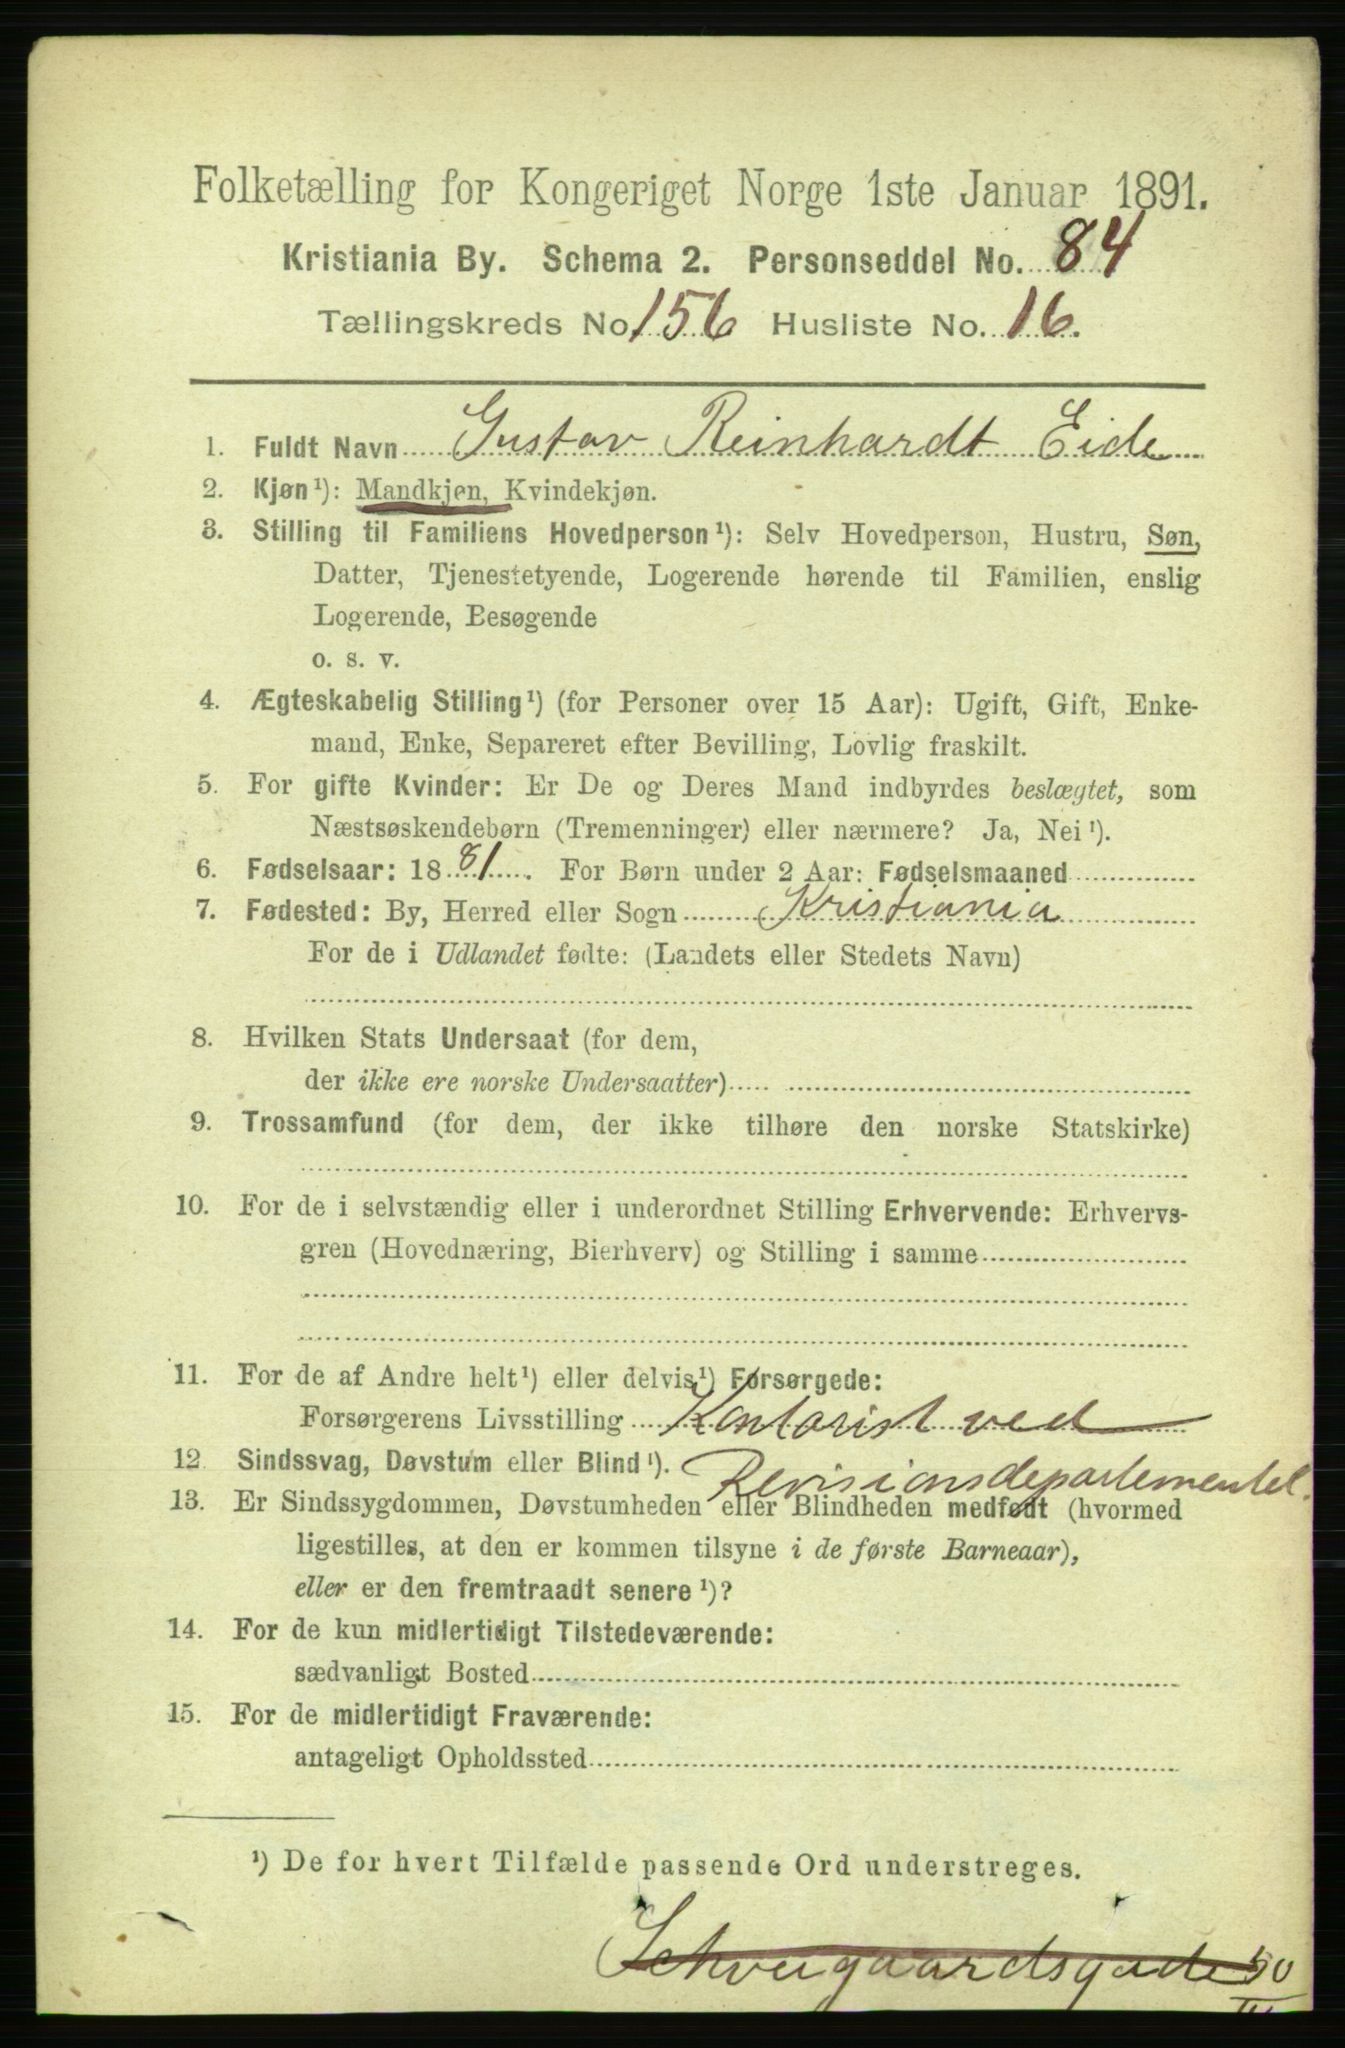 Folketælling for Kongeriget Norge 1ste Januar 1891.
Kristiania By. Schema 2. Personseddel No. 84
Tællingskreds No. 156 Husliste No. 16.
1. Fuldt Navn Gustav Reinhardt Eide
2. Kjøn¹): Mandkjøn, Kvindekjøn.
3. Stilling til Familiens Hovedperson¹): Selv Hovedperson, Hustru, Søn,
Datter, Tjenestetyende, Logerende hørende til Familien, enslig
Logerende, Besøgende
o. s. v.
4. Ægteskabelig Stilling¹) (for Personer over 15 Aar): Ugift, Gift, Enke-
mand, Enke, Separeret efter Bevilling, Lovlig fraskilt.
5. For gifte Kvinder: Er De og Deres Mand indbyrdes beslægtet, som
Næstsøskendebørn (Tremenninger) eller nærmere? Ja, Nei¹).
6. Fødselsaar: 1881. For Børn under 2 Aar: Fødselsmaaned
7. Fødested: By, Herred eller Sogn Kristiania
For de i Udlandet fødte: (Landets eller Stedets Navn)
8. Hvilken Stats Undersaat (for dem,
der ikke ere norske Undersaatter)
9. Trossamfund (for dem, der ikke tilhøre den norske Statskirke)
10. For de i selvstændig eller i underordnet Stilling Erhvervende: Erhvervs-
gren (Hovednæring, Bierhverv) og Stilling i samme
11. For de af Andre helt¹) eller delvis¹) Forsørgede:
Forsørgerens Livsstilling Kontorist ved
12. Sindssvag, Døvstum eller Blind¹). Revisionsdepartementet.
13. Er Sindssygdommen, Døvstumheden eller Blindheden medfødt (hvormed
ligestilles, at den er kommen tilsyne i de første Barneaar),
eller er den fremtraadt senere¹)?
14. For de kun midlertidigt Tilstedeværende:
sædvanligt Bosted
15. For de midlertidigt Fraværende:
antageligt Opholdssted
¹) De for hvert Tilfælde passende Ord understreges.
Schveigaardsgade 50
IV